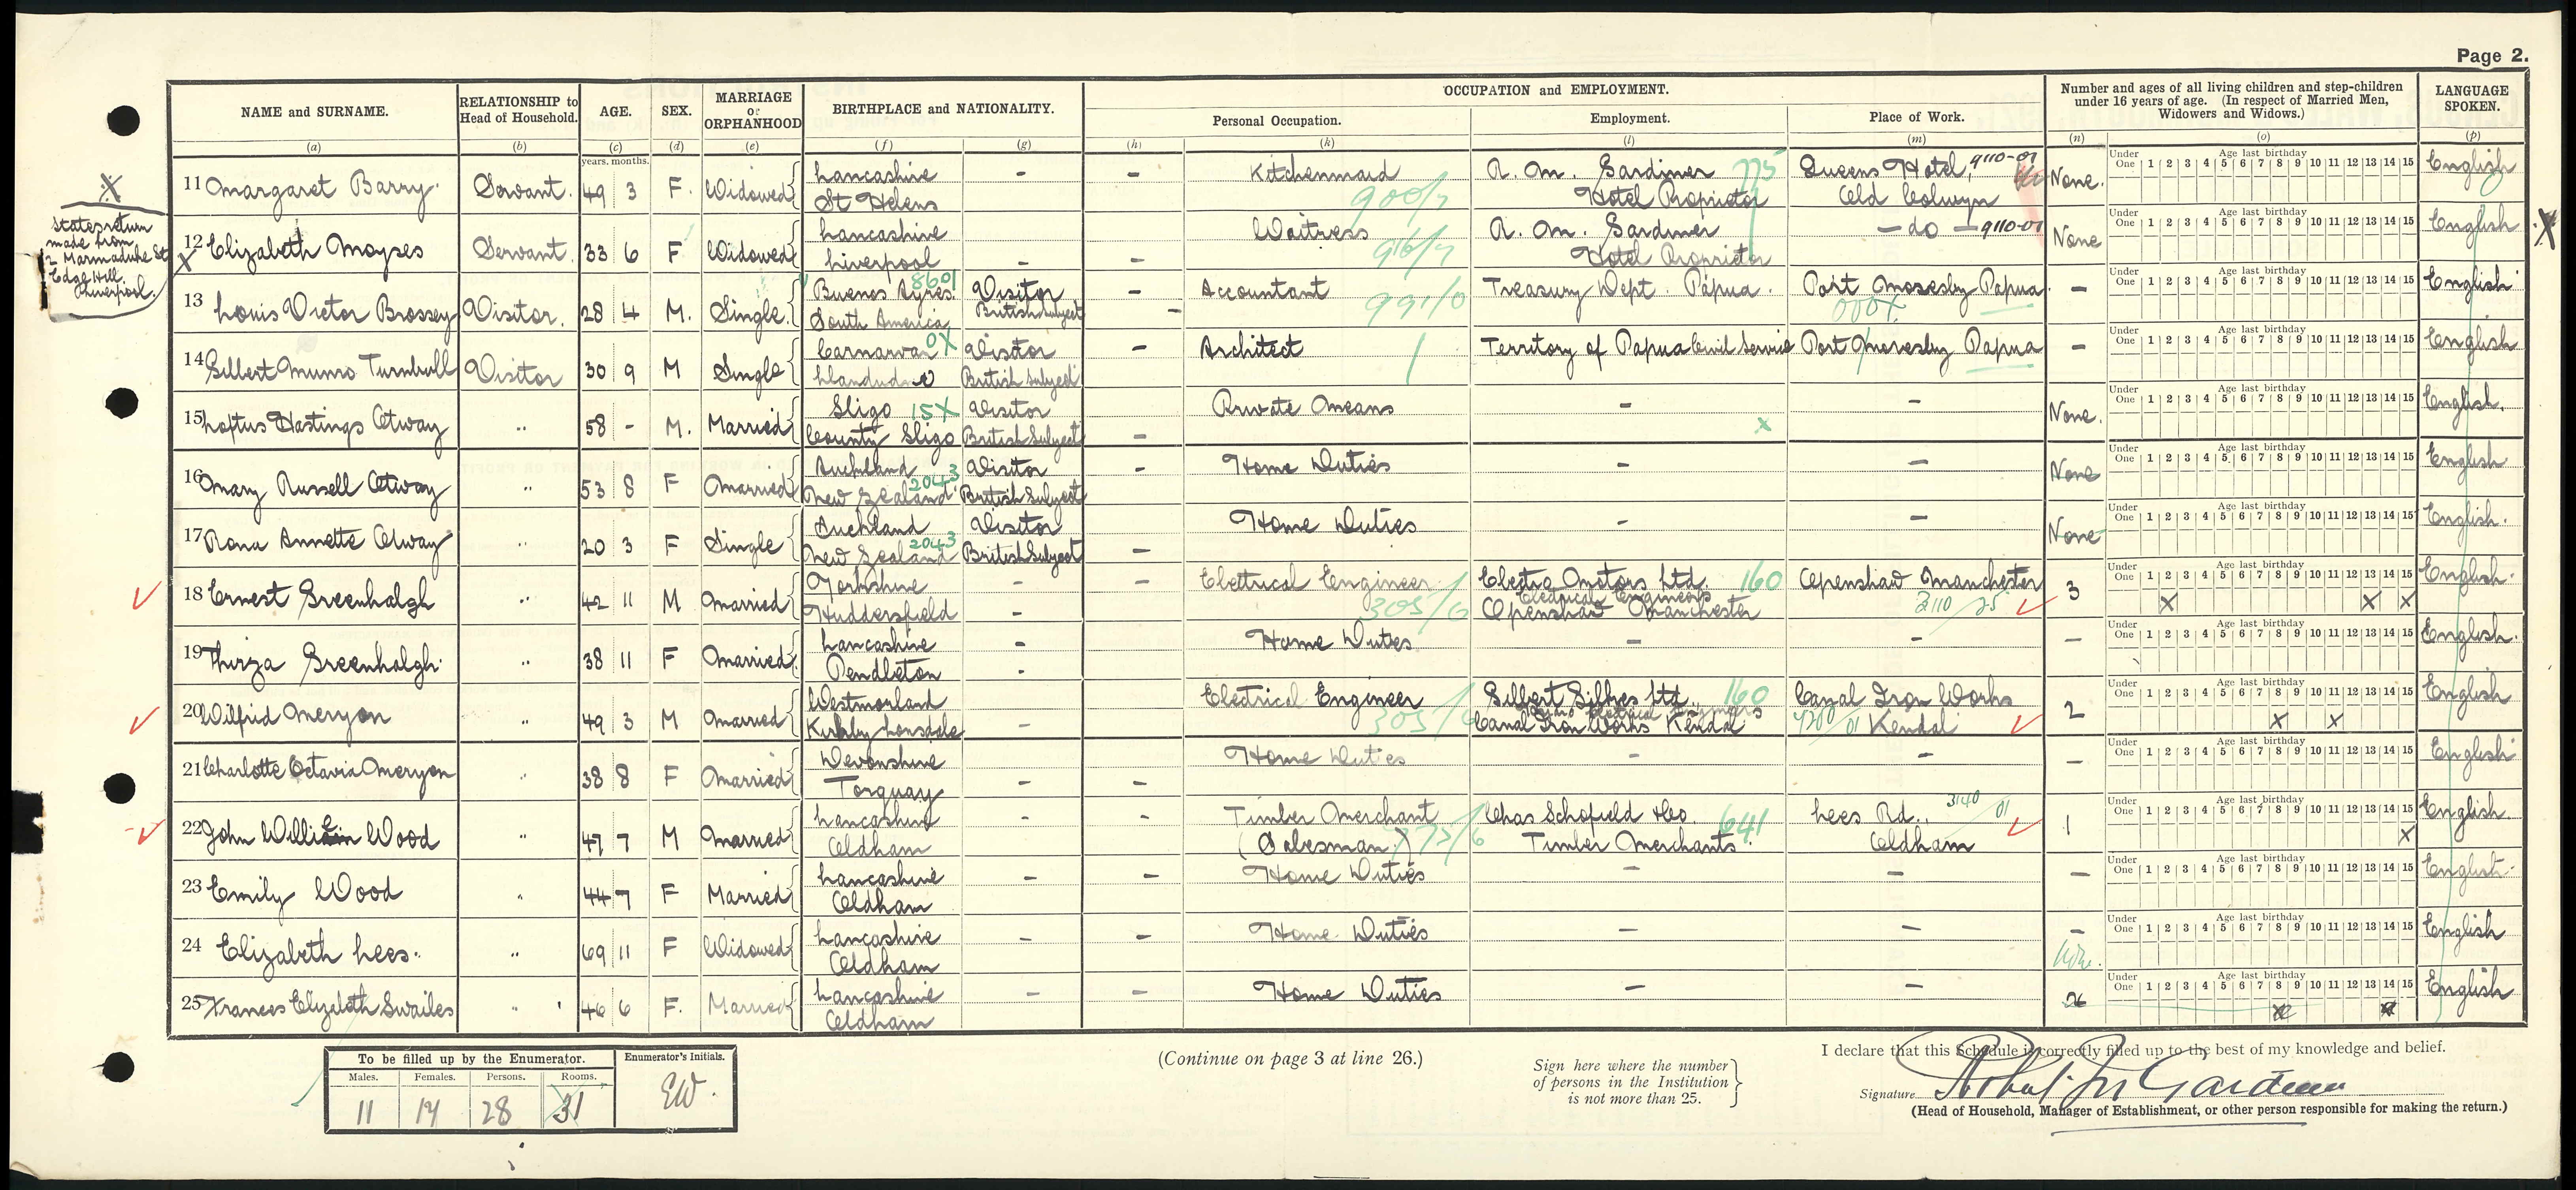 Page 2.
NAME and SURNAME. RELATIONSHIP to Head of Household. AGE. SEX. MARRIAGE or ORPHANHOOD BIRTHPLACE and NATIONALITY. OCCUPATION and EMPLOYMENT. Number and ages of all living children and step-children under 16 years of age. (In respect of Married Men, Widowers and Widows.) LANGUAGE SPOKEN.
Personal Occupation. Employment. Place of Work.
(a) (b) (c) (d) (e) (f) (g) (h) (k) (l) (m) (n) (o) (p)
years. months.
Under One 1 2 3 4 5 6 7 8 9 10 11 12 13 14 15 Age last birthday
11 Margaret Barry. Servant. 49 3 F. Widowed Lancashire St Helens - - Kitchenmaid 900/7 R. M. Gardiner Hotel Proprietor 775 Queens Hotel, Old Colwyn 9110-01 None. English
X
States return
made from
2 Marmaduke St
Edge Hill
Liverpool.
12 Elizabeth Moyses Servant. 33 6 F Widowed Lancashire Liverpool - - Waitress 916/7 R. M. Gardiner Hotel Proprietor - do - 9110-01 None English X
13 Louis Victor Brossey Visitor. 28 4 M. Single Buenos Ayres. South America 8601 Visitor British Subject - Accountant 991/0 Treasury Dept. Papua. Port Moresby Papua 000X - English
14 Gilbert Munro Turnbull Visitor 30 9 M Single Carnarvon Llandudno 0X Visitor British Subject - Architect Territory of Papua Civil Service Port Moresby Papua - English
15 Loftus Hastings Otway " 58 - M. Married Sligo County Sligo 15X Visitor British Subject - Private Means - x - None. English.
16 Mary Russell Otway " 53 8 F Married Auckland New Zealand 2043 Visitor British Subject - Home Duties - - None English
17 Rona Annette Otway " 20 3 F Single Auckland New Zealand 2043 Visitor British Subject - Home Duties - - None English.
18 Ernest Greenhalgh " 42 11 M Married Yorkshire Huddersfield - - - Electrical Engineer 305/0 Electro Motors Ltd. Electrical Engineers Openshaw Manchester 160 Openshaw Manchester 3110/25 3 X X X English.
19 Thirza Greenhalgh. " 38 11 F Married Lancashire Pendleton - - Home Duties - - - English.
20 Wilfrid Meryon " 49 3 M Married Westmorland Kirkby Lonsdale - Electrical Engineer 305/0 Gilbert Gilkes Ltd. Canal Iron Works Kendal 160 Canal Iron Works Kendal 2 X X English
21 Charlotte Octavia Meryon " 38 8 F Married Devonshire Torquay - - Home Duties - - - English
22 John William Wood " 47 7 M Married Lancashire Oldham - - Timber Merchant (Salesman) 775/6 Chas Schofield & Co. Timber Merchants. 641 Lees Rd., Oldham 3140/01 1 X English.
23 Emily Wood " 44 7 F Married Lancashire Oldham - - Home Duties - - - English.
24 Elizabeth Lees. " 69 11 F Widowed Lancashire Oldham - - Home Duties - - - English
25 Frances Elizabeth Swailes " 46 6 F. Married Lancashire Oldham - - Home Duties - - English
To be filled up by the Enumerator. Enumerator's Initials.
Males. Females. Persons. Rooms.
11 17 28 31 EW.
(Continue on page 3 at line 26.)
Sign here where the number
of persons in the Institution
is not more than 25.
I declare that this Schedule is correctly filled up to the best of my knowledge and belief.
Signature Robert M Gardiner
(Head of Household, Manager of Establishment, or other person responsible for making the return.)